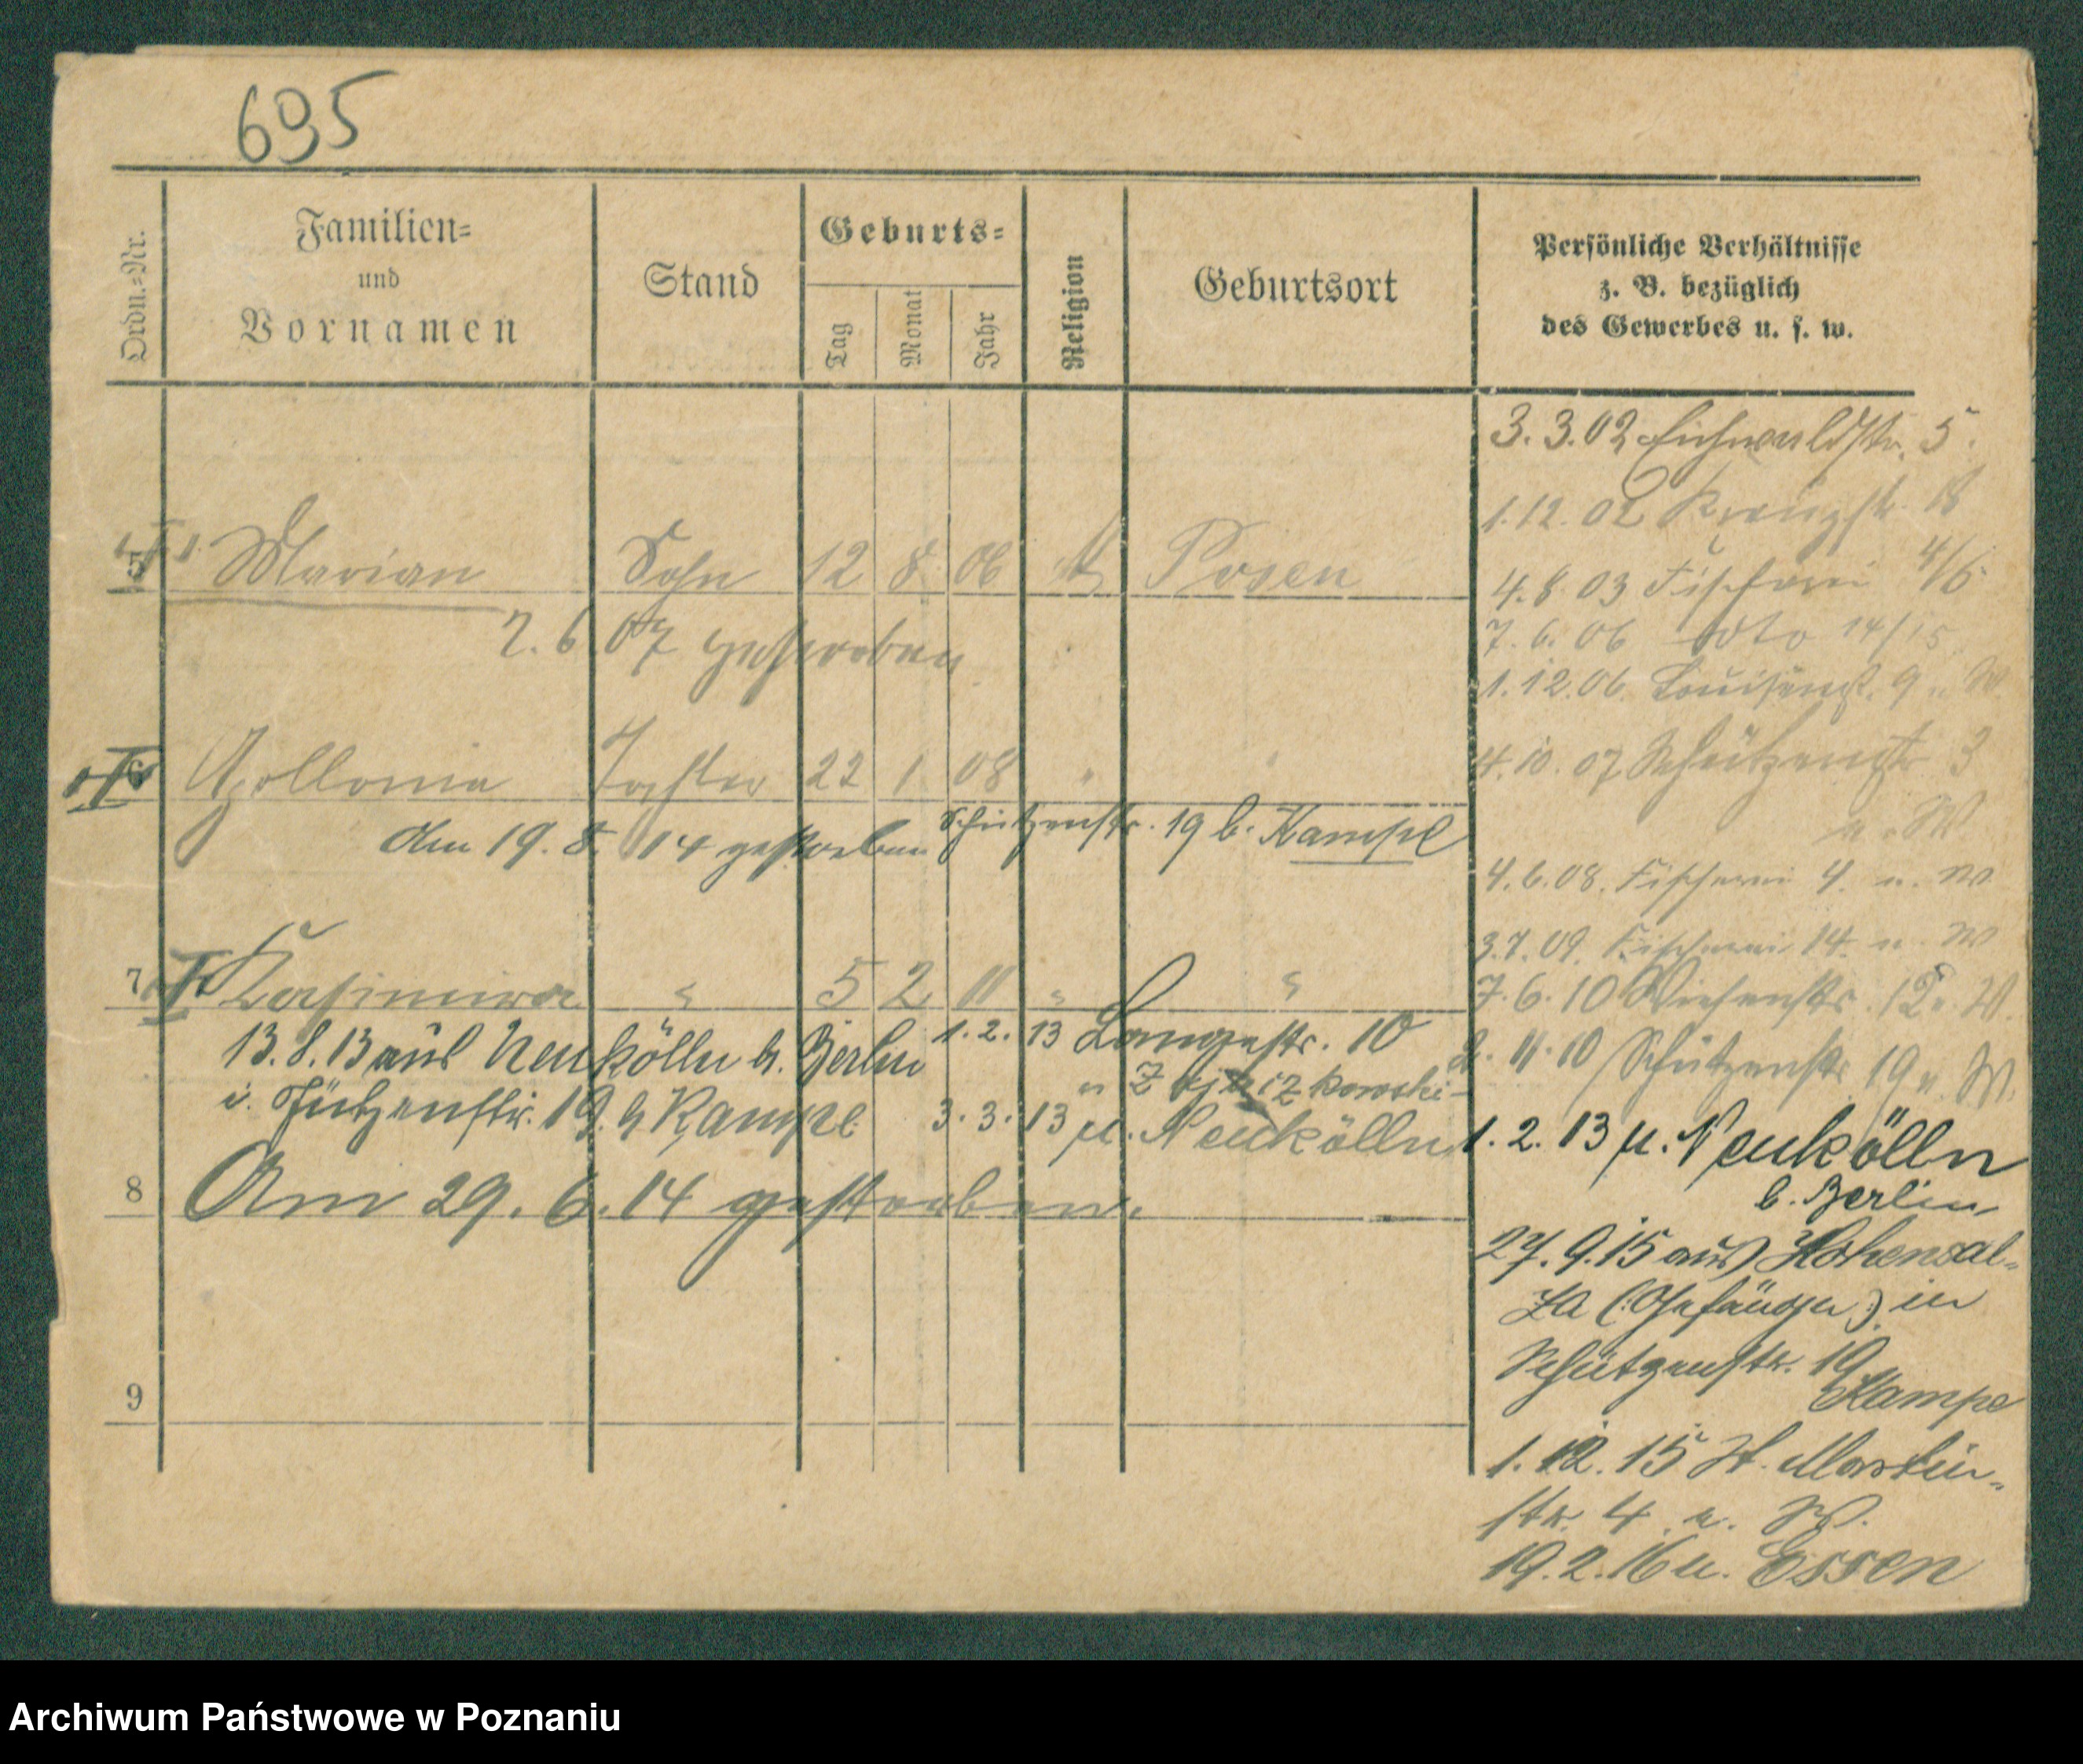 695
Ordn.-Nr.
Familien-
und
Vornamen
Stand
Geburts-
Tag
Monat
Jahr
Religion
Geburtsort
Persönliche Verhältnisse
z. B. bezüglich
des Gewerbes u. s. w.
3.3.02 Eichwaldstr. 5.
1.12.02 Kreuzstr. 18
5 Marian Sohn 12 8 06 Posen
4.8.03 Fischerei 4/5
2.6.07 gestorben
7.6.06 dto 14/15
1.12.06. Louisenstr. 9 u. W
6 Apollonia Tochter 22 1 08 "
4.10.07 Schützenstr 3
u. W
Am 19.8.14 gestorben Schützenstr. 19 b. Kampe
4.6.08. Fischerei 4. u. W.
3.7.09. Fischerei 14. u. W
7 Kasimira " 5 2 11 " "
7.6.10 Wiesenstr. u. W.
13.8.13 aus Neukölln b. Berlin
i. Schützenstr. 19. b Kampe
1.2.13 Langestr. 10
3.3.13 u. Neukölln
11.10 Schützenstr. 19 u. W.
1.2.13 u. Neukölln
b. Berlin
8 Am 29.6.14 gestorben.
27.9.15 aus Hohensal-
za (Gefängn.) in
Schützenstr. 19
Kampe
9
1.12.15 St. Martin-
str. 4 u. W.
19.2.16 u. Essen
Archiwum Państwowe w Poznaniu